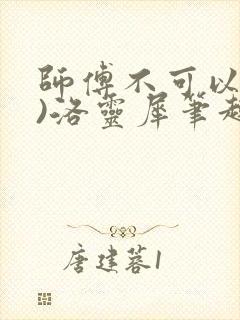 師傅不可以
)洛靈犀筆趣
唐建蓉1